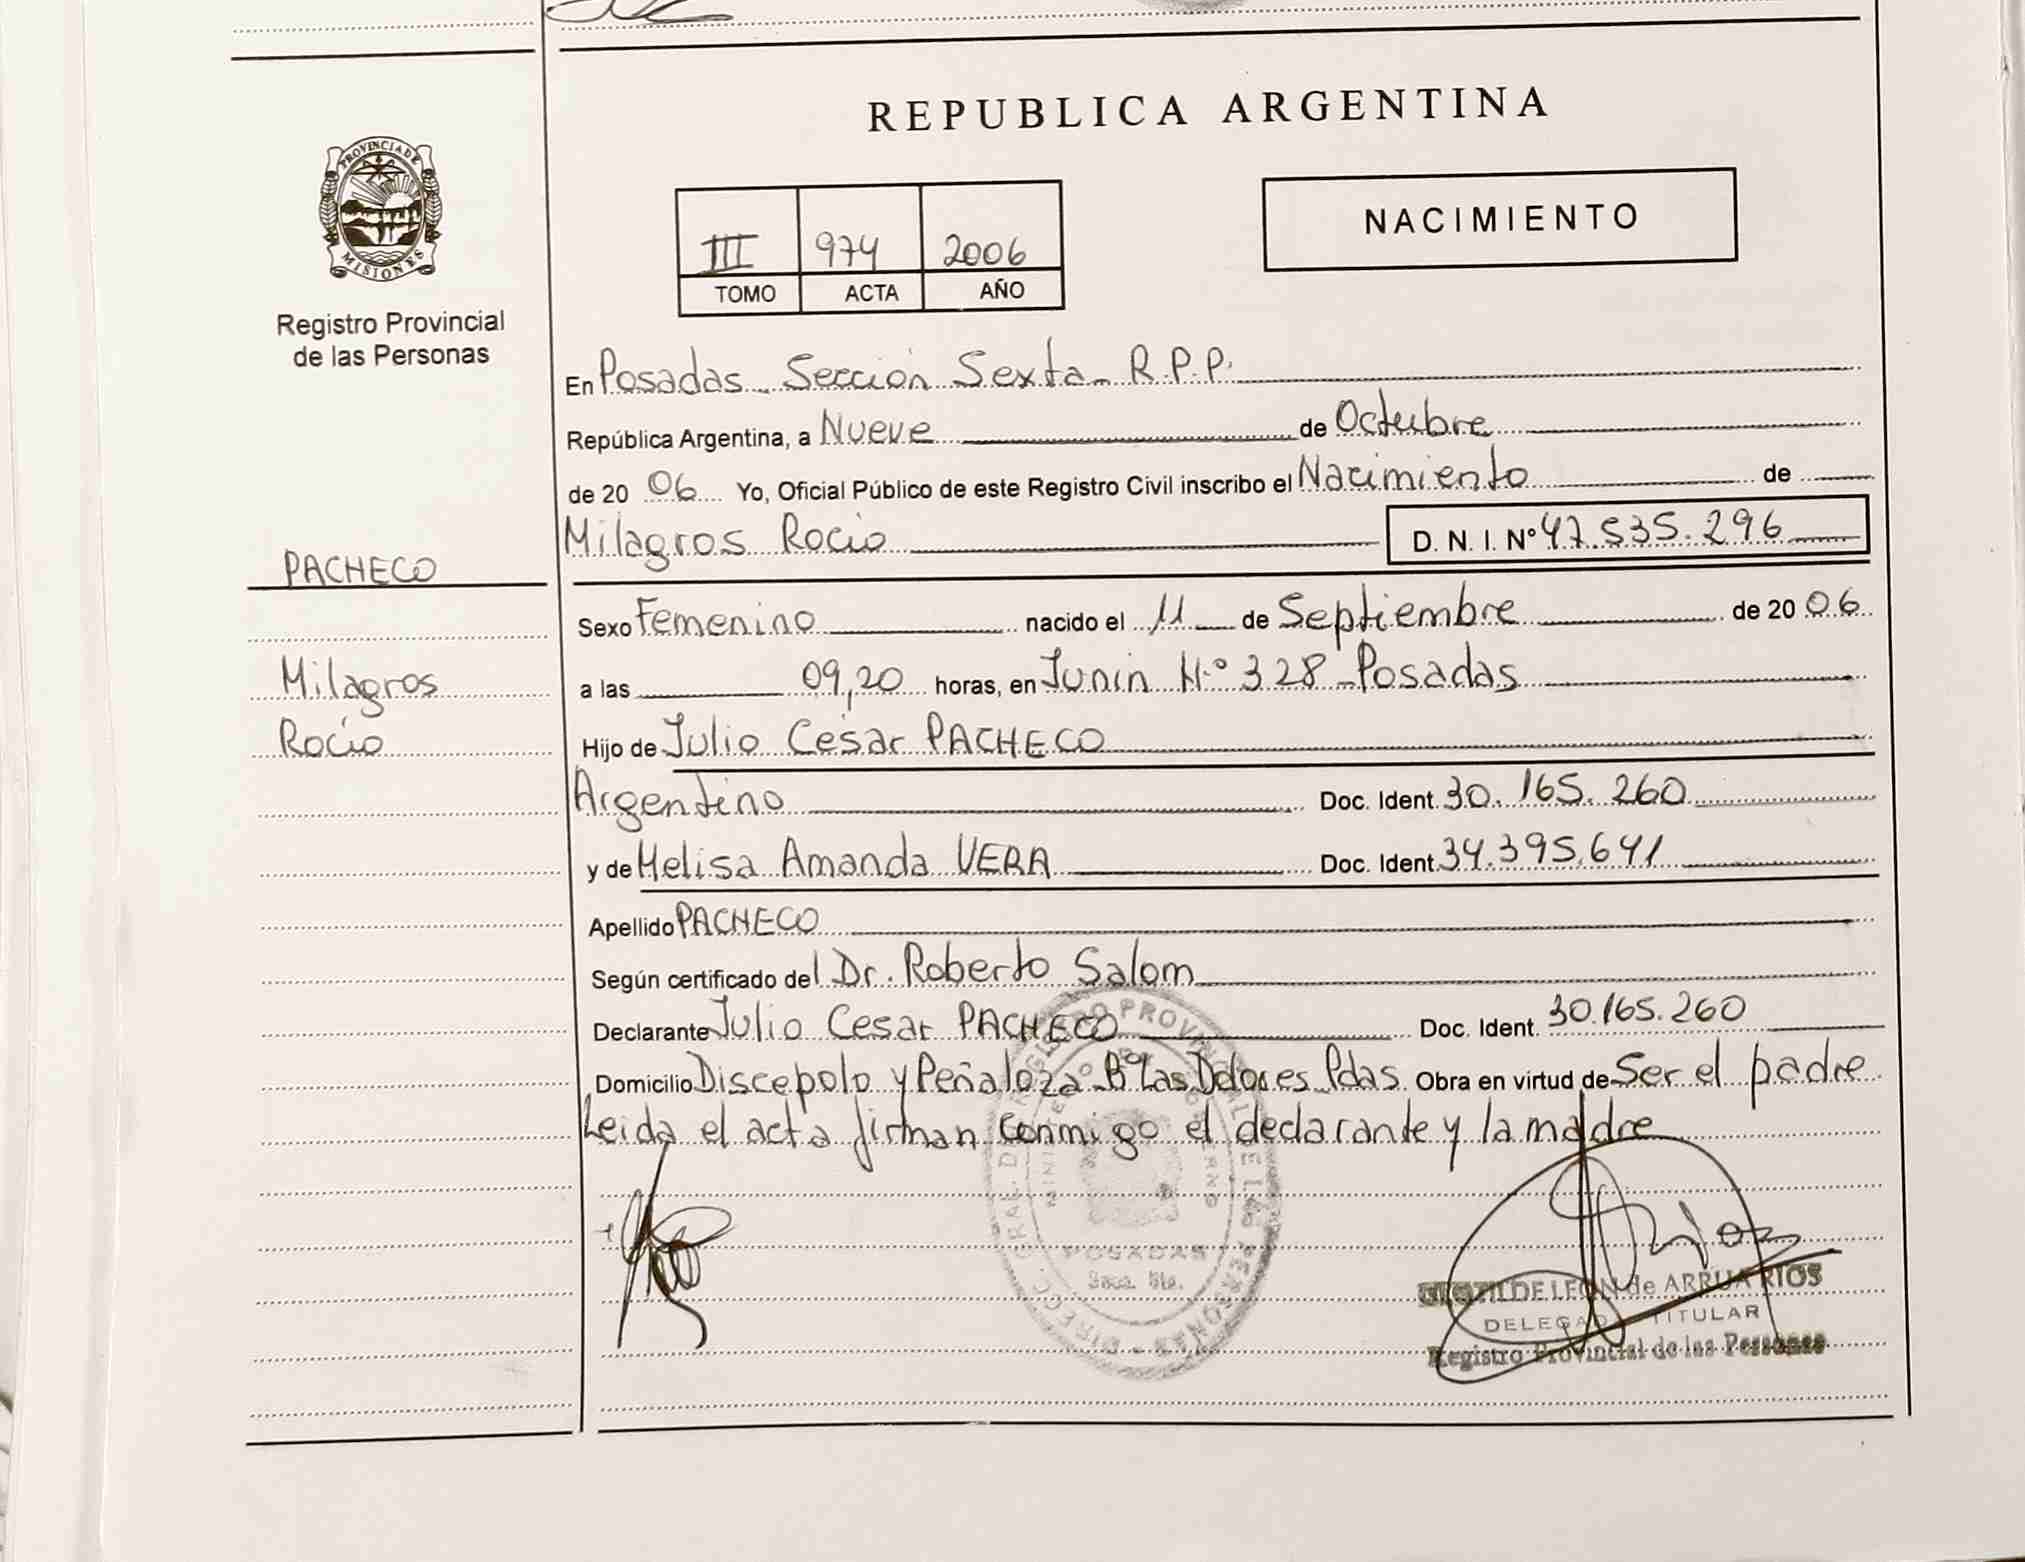 REPUBLICA ARGENTINA
PROVINCIA DE
MISIONES
Registro Provincial
de las Personas
III 974 2006
TOMO ACTA AÑO
NACIMIENTO
En Posadas Sección Sexta R.P.P.
República Argentina, a Nueve de Octubre
de 20 06 Yo, Oficial Público de este Registro Civil inscribo el Nacimiento de
Milagros Rocio D. N. I. Nº 47.535.296
PACHECO
Milagros
Rocio
Sexo Femenino nacido el 11 de Septiembre de 20 06
a las 09,20 horas, en Junin Nº 328 Posadas
Hijo de Julio Cesar PACHECO
Argentino Doc. Ident. 30.165.260
y de Melisa Amanda VERA Doc. Ident. 34.395.641
Apellido PACHECO
Según certificado del Dr. Roberto Salom
Declarante Julio Cesar PACHECO Doc. Ident. 30.165.260
Domicilio Discepolo y Peñaloza Bº Las Dolores Pdas. Obra en virtud de Ser el padre
Leida el acta firman conmigo el declarante y la madre
DIRECC. GRAL. DE REGISTRO PROVINCIAL DE LAS PERSONES
POSADAS
Secc. 6ta.
DE LEON de ARRUA RIOS
DELEGADO TITULAR
Registro Provincial de las Personas